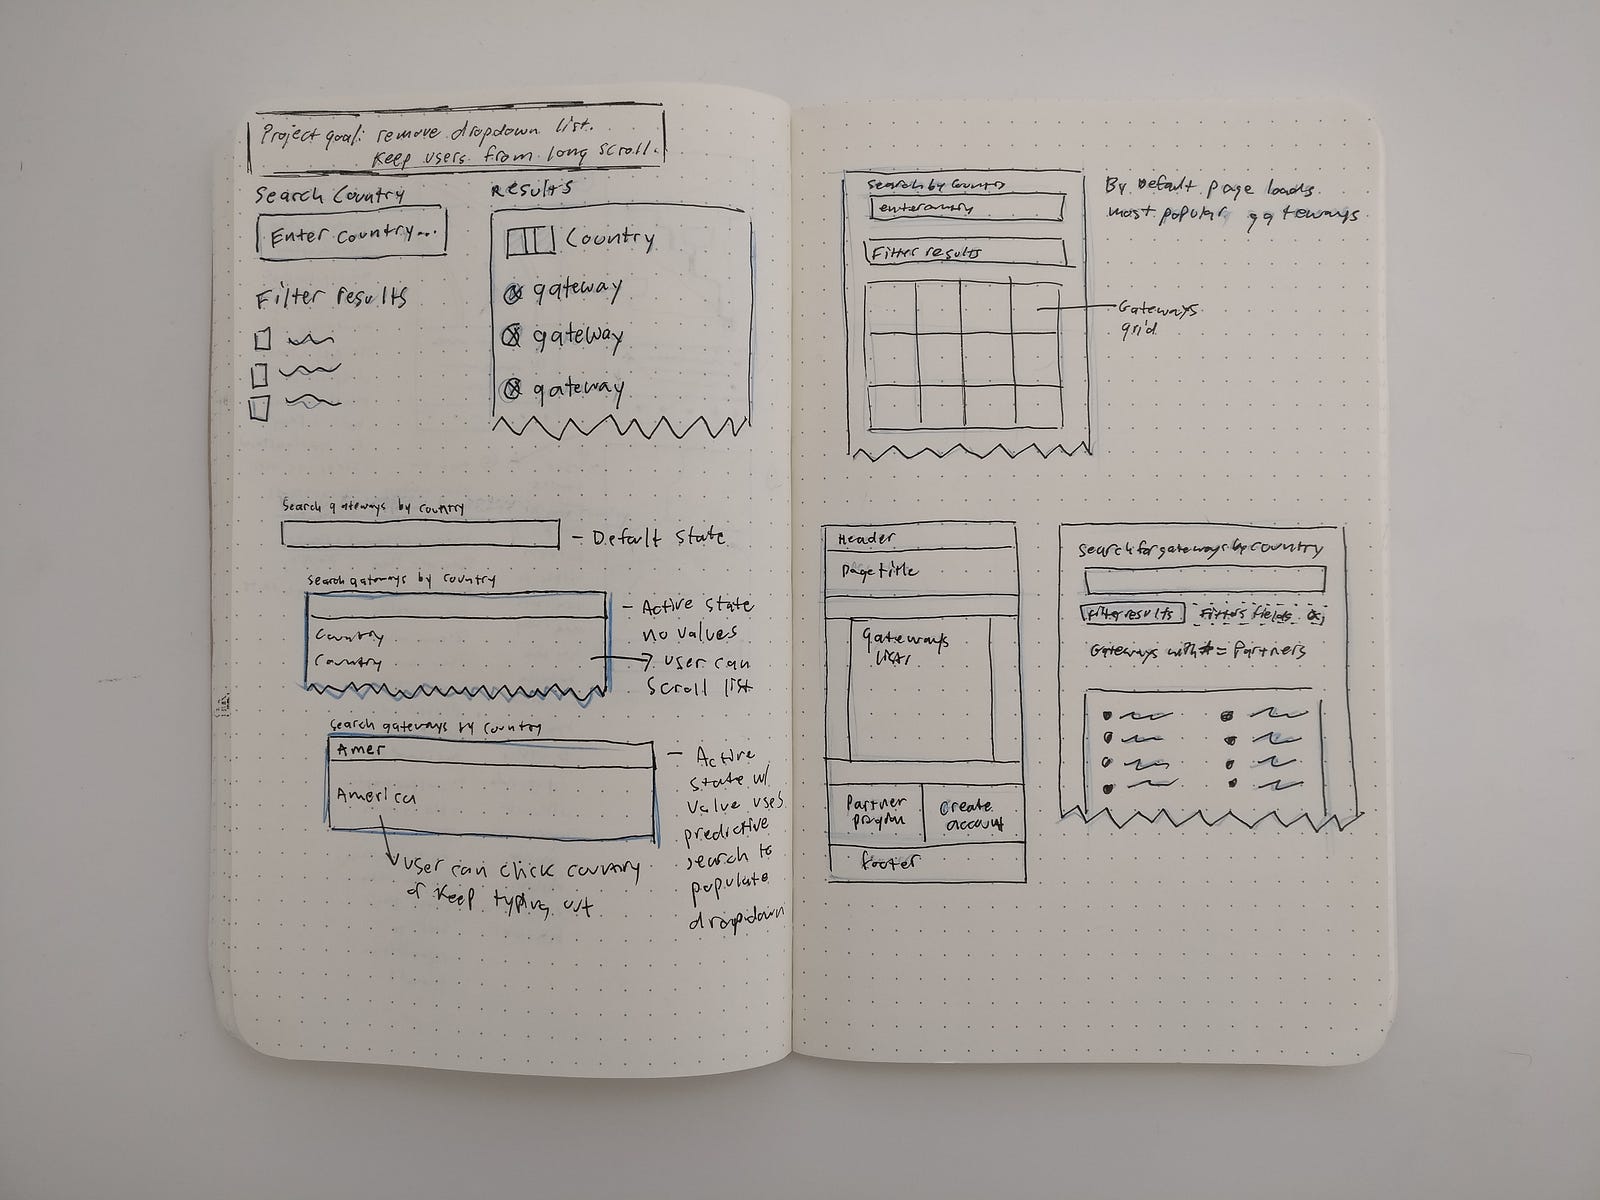 Project goal: remove dropdown list.
Keep users from long scroll.
Search Country
Enter Country...
Filter results
Results
Country
gateway
gateway
gateway
Search gateways by country
- Default state
Search gateways by country
Country
Country
- Active state
no values
user can
scroll list
Search gateways by country
Amer
America
- Active
state w/
value uses
predictive
search to
populate
dropdown
user can click country
or keep typing out
Search by Country
enter country
Filter results
By Default page loads
most popular gateways
Gateways
grid
Header
Page title
Gateways
list
Partner
program
Create
account
footer
Search for gateways by country
Filter results
Filters fields
Gateways with * = Partners